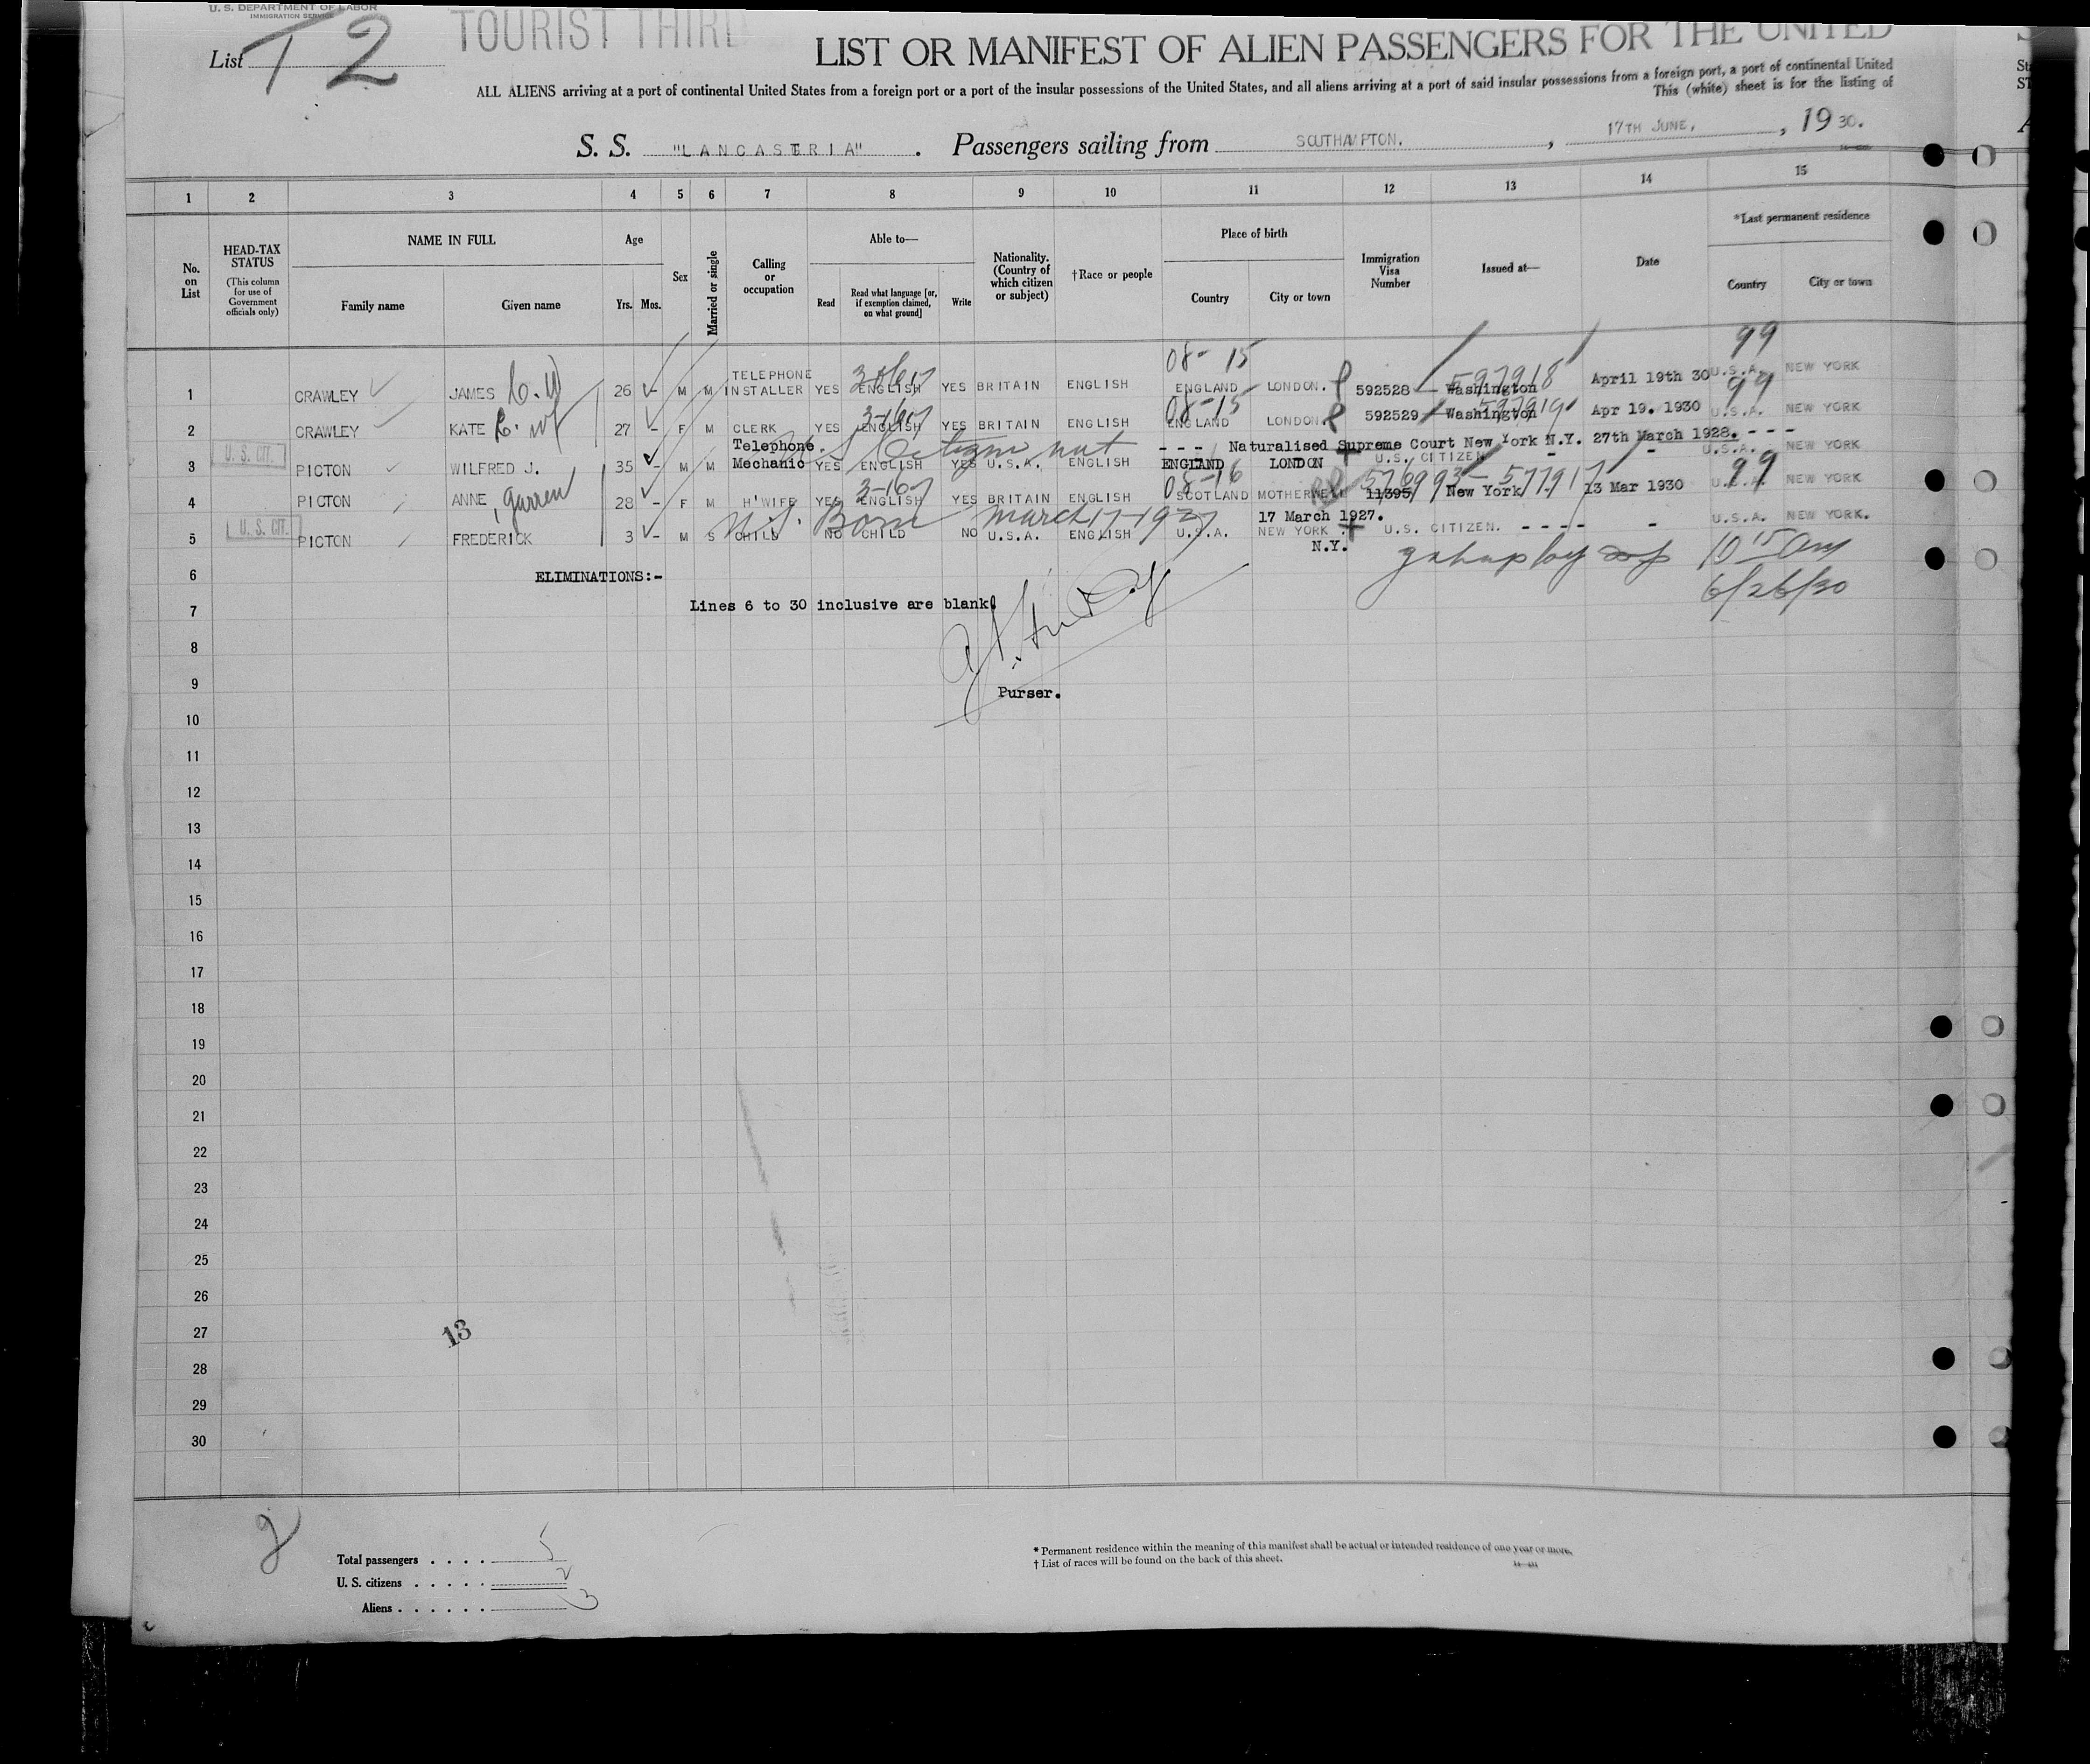 U. S. DEPARTMENT OF LABOR
IMMIGRATION SERVICE
List T 2
TOURIST THIRD
LIST OR MANIFEST OF ALIEN PASSENGERS FOR THE UNITED
ALL ALIENS arriving at a port of continental United States from a foreign port or a port of the insular possessions of the United States, and all aliens arriving at a port of said insular possessions from a foreign port, a port of continental United
This (white) sheet is for the listing of
S. S. "LANCASTRIA" . Passengers sailing from SOUTHAMPTON. , 17TH JUNE, , 1930.
1 2 3 4 5 6 7 8 9 10 11 12 13 14 15
No. on List
HEAD-TAX STATUS
(This column for use of Government officials only)
NAME IN FULL
Family name Given name
Age
Yrs. Mos.
Sex
Married or single
Calling or occupation
Able to—
Read
Read what language [or, if exemption claimed, on what ground]
Write
Nationality. (Country of which citizen or subject)
†Race or people
Place of birth
Country City or town
Immigration Visa Number
Issued at—
Date
*Last permanent residence
Country City or town
08-15 99
1 CRAWLEY JAMES 26 - M M TELEPHONE INSTALLER YES ENGLISH YES BRITAIN ENGLISH ENGLAND LONDON. 592528 Washington 597918 April 19th 30 U.S.A. NEW YORK
08-15 99
2 CRAWLEY KATE 27 - F M CLERK YES ENGLISH YES BRITAIN ENGLISH ENGLAND LONDON 592529 Washington 597919 Apr 19. 1930 U.S.A. NEW YORK
U. S. CIT. U S Citizen nat - - - Naturalised Supreme Court New York N.Y. 27th March 1928. - - -
3 PICTON WILFRED J. 35 - M M Telephone. Mechanic YES ENGLISH YES U.S.A. ENGLISH ENGLAND LONDON U.S. CITIZEN - - U.S.A. NEW YORK
3-16-7 08-16 576993 - 577917 99
4 PICTON ANNE, 28 - F M H'WIFE YES ENGLISH YES BRITAIN ENGLISH SCOTLAND MOTHERWELL 11395 New York 13 Mar 1930 U.S.A. NEW YORK
U. S. CIT. U.S. Born March 17-1927 17 March 1927.
5 PICTON FREDERICK 3 - M S CHILD NO CHILD NO U.S.A. ENGLISH U.S.A. NEW YORK N.Y. U.S. CITIZEN. - - - - - U.S.A. NEW YORK.
10 15 am
6/26/30
6 ELIMINATIONS:-
7 Lines 6 to 30 inclusive are blank.
8
9 Purser.
10
11
12
13
14
15
16
17
18
19
20
21
22
23
24
25
26
27 13
28
29
30
Total passengers . . . . 5
U. S. citizens . . . . . 2
Aliens . . . . . . 3
* Permanent residence within the meaning of this manifest shall be actual or intended residence of one year or more.
† List of races will be found on the back of this sheet.